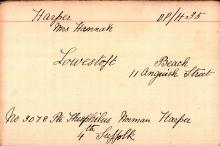 Harper DP/H35
Mrs Hannah
Lowestoft Beach
11 Anguish Street
No 3078 Pte Theophilus Norman Harper
4th Suffolk